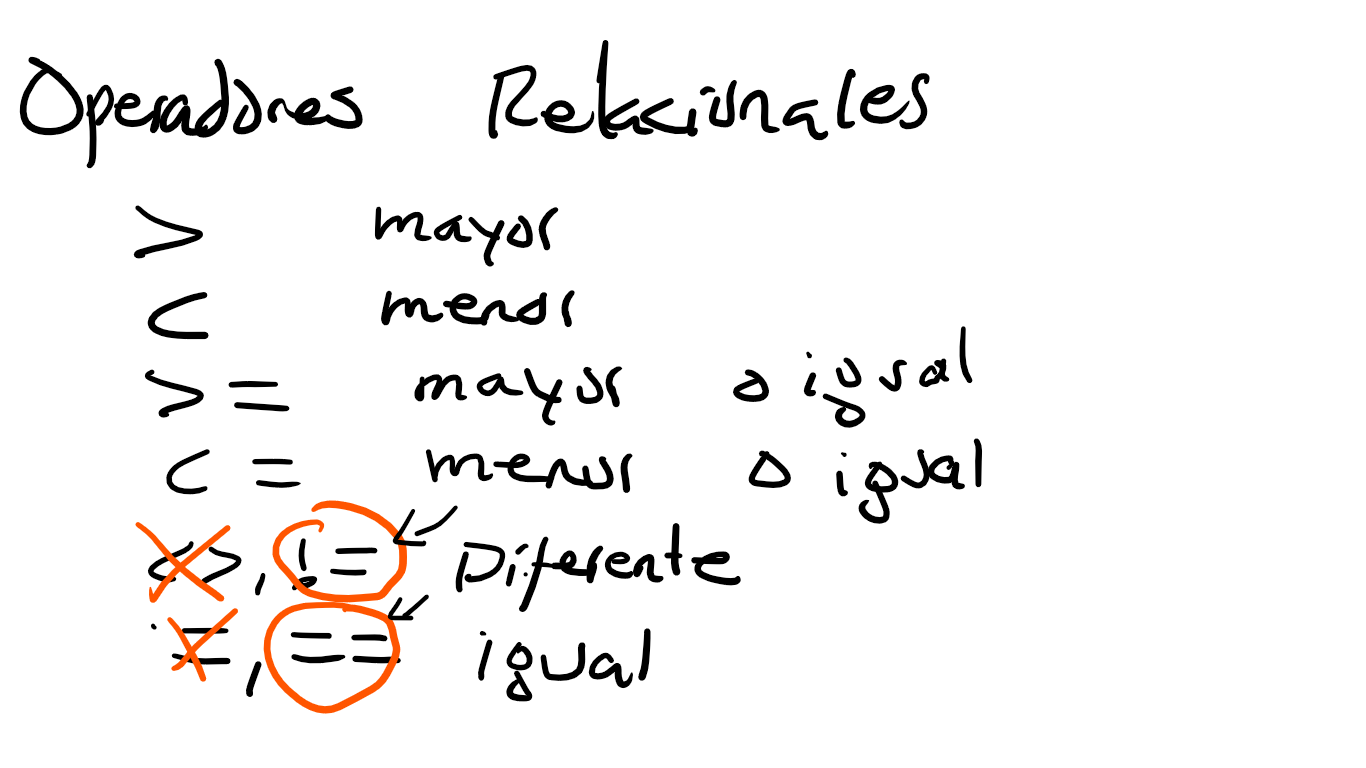 Operadores Relacionales
> mayor
< menor
>= mayor o igual
<= menor o igual
<>, != Diferente
=, == igual